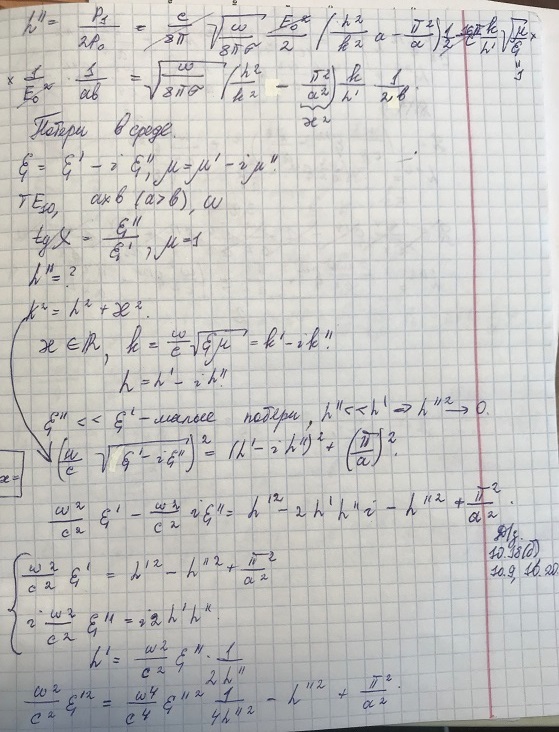 h'' = P₁/2P₀ = c/8π √(ω/8πσ) E₀²/2 (h²/k² a - π²/a) 1/2 k/h' √(μ/ε) ×
× 1/E₀² · 1/ab = √(ω/8πσ) (h²/k² - π²/a²) k/h' · 1/2b.
ϰ²
1
Потери в среде.
ε = ε' - i ε'', μ = μ' - i μ''.
TE₁₀, a×b (a>b), ω
tgδ = ε''/ε', μ=1
h'' = ?
k² = h² + ϰ².
ϰ ∈ ℝ, k = ω/c √(εμ) = k' - ik''.
h = h' - i h''
ε'' << ε' - малые потери, h'' << h' ⇒ h''² → 0.
(ω/c √(ε' - iε''))² = (h' - i h'')² + (π/a)².
ω²/c² ε' - ω²/c² iε'' = h'² - 2 h' h'' i - h''² + π²/a².
Д/з.
10.18(б)
10.9, 10.20.
{ ω²/c² ε' = h'² - h''² + π²/a²
i ω²/c² ε'' = i2 h' h''.
h' = ω²/c² ε'' · 1/2h''
ω²/c² ε'² = ω⁴/c⁴ ε''² 1/4h''² - h''² + π²/a².